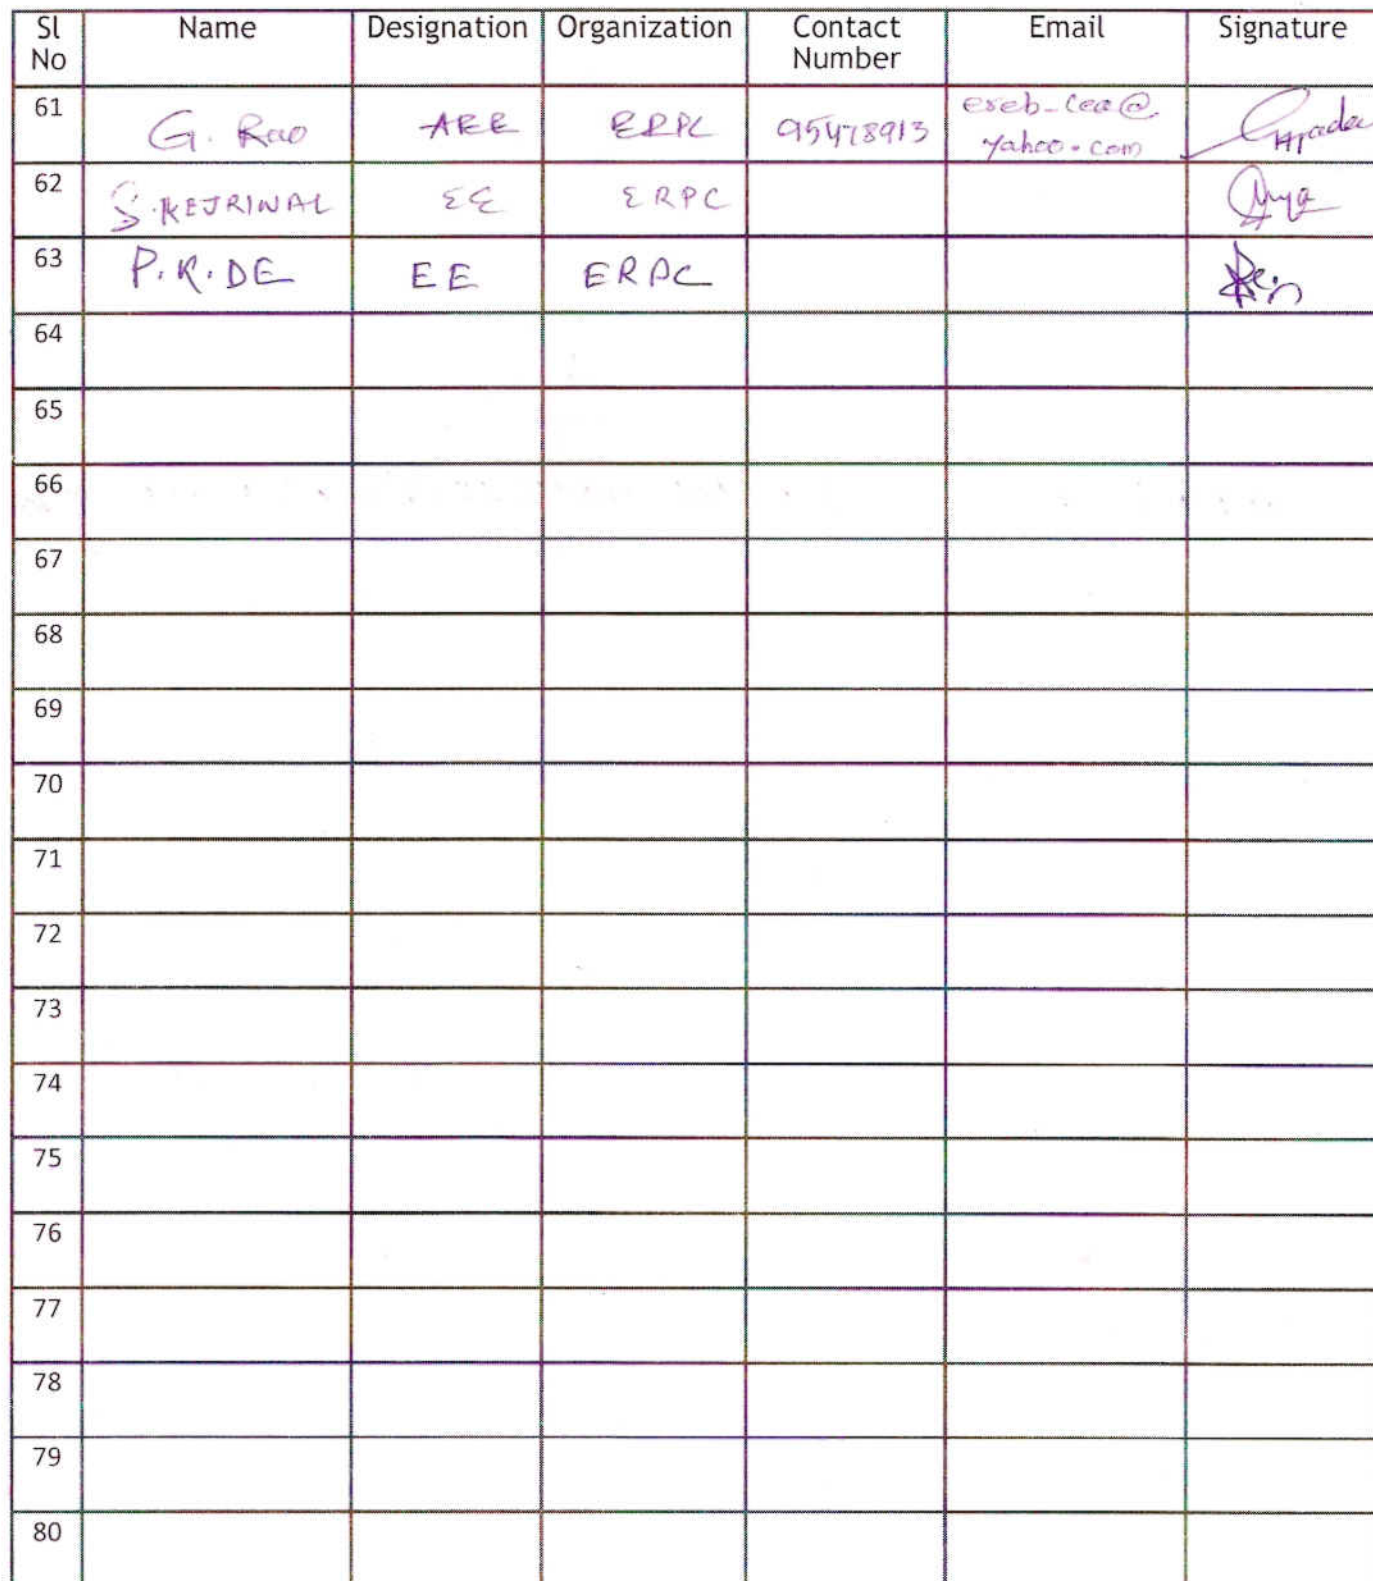 Sl No Name Designation Organization Contact Number Email Signature
61 G. Rao AEE ERPC 95478913 ereb-cea@yahoo.com
62 S. KEJRIWAL EE ERPC
63 P.K. DE EE ERPC
64
65
66
67
68
69
70
71
72
73
74
75
76
77
78
79
80